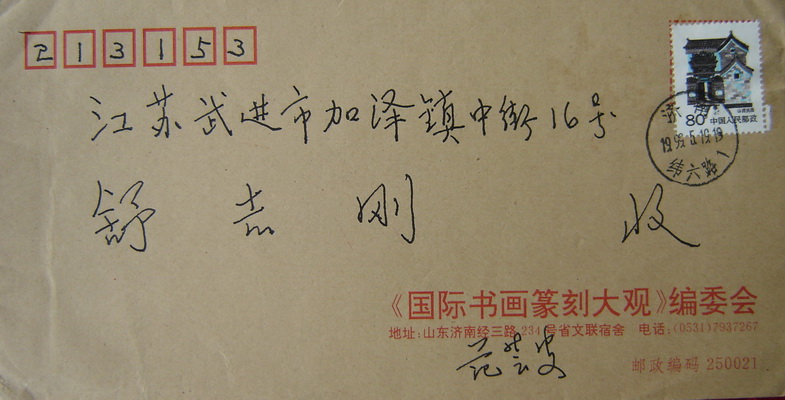 213153
80 中国人民邮政
济南
1999.5.19.19
纬六路
江苏武进市加泽镇中街16号
舒志刚 收
《国际书画篆刻大观》编委会
地址:山东济南经三路234号省文联宿舍 电话:(0531)7937267
邮政编码 250021